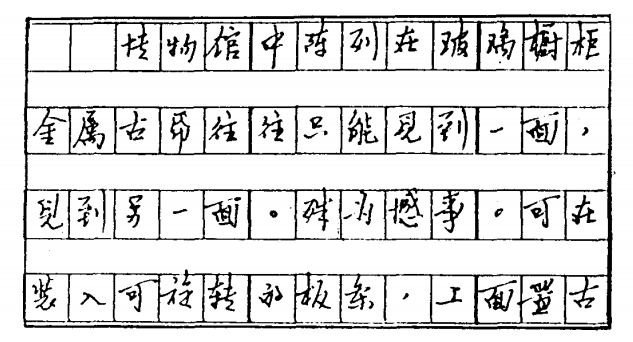 博物馆中陈列在玻璃橱柜
金属古币往往只能见到一面，
见到另一面。殊为憾事。可在
装入可旋转的板条，上面置古